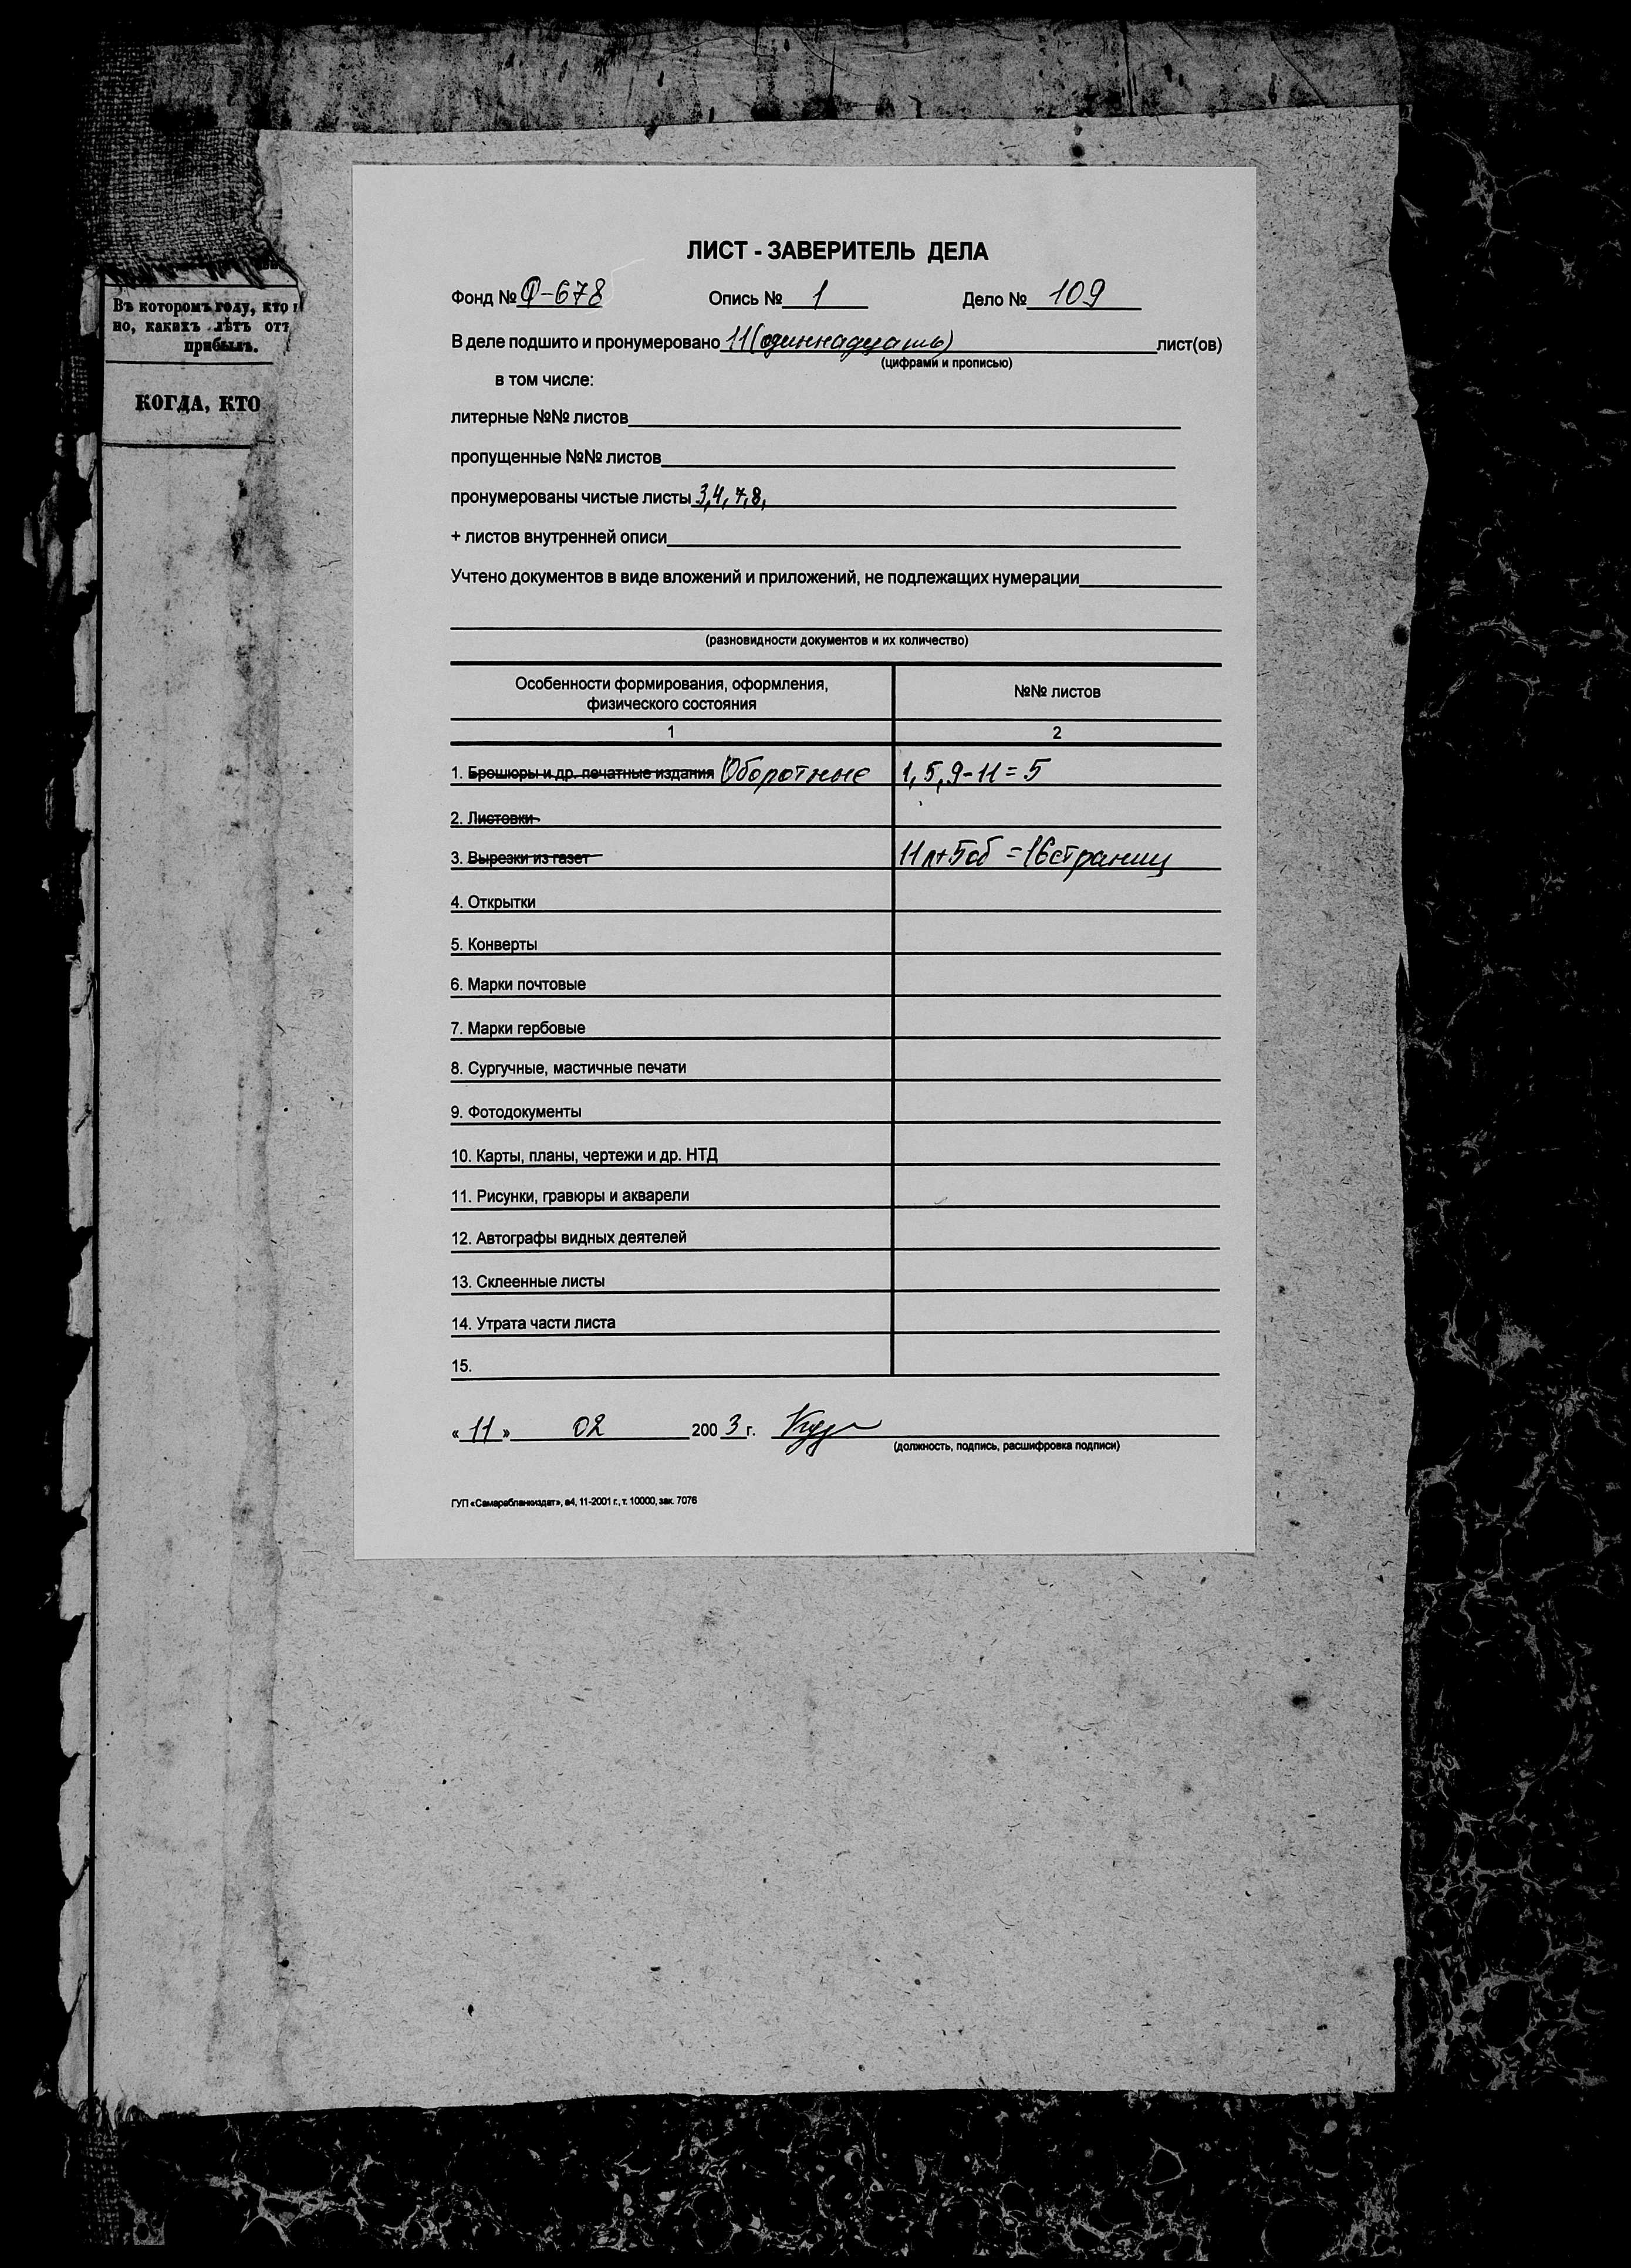 Въ которомъ году, кто
но, какихъ лѣтъ отъ
прибылъ.
КОГДА, КТО
ЛИСТ - ЗАВЕРИТЕЛЬ ДЕЛА
Фонд № Ф-678 Опись № 1 Дело № 109
В деле подшито и пронумеровано 11 (одиннадцать) лист(ов)
(цифрами и прописью)
в том числе:
литерные №№ листов
пропущенные №№ листов
пронумерованы чистые листы 3,4,7,8,
+ листов внутренней описи
Учтено документов в виде вложений и приложений, не подлежащих нумерации
(разновидности документов и их количество)
Особенности формирования, оформления, №№ листов
физического состояния
1 2
1. Брошюры и др. печатные издания Оборотные 1, 5, 9-11 = 5
2. Листовки
3. Вырезки из газет 11л+5об = 16страниц
4. Открытки
5. Конверты
6. Марки почтовые
7. Марки гербовые
8. Сургучные, мастичные печати
9. Фотодокументы
10. Карты, планы, чертежи и др. НТД
11. Рисунки, гравюры и акварели
12. Автографы видных деятелей
13. Склеенные листы
14. Утрата части листа
15.
« 11 » 02 2003 г.
(должность, подпись, расшифровка подписи)
ГУП «Самарабланкиздат», а4, 11-2001 г., т. 10000, зак. 7076